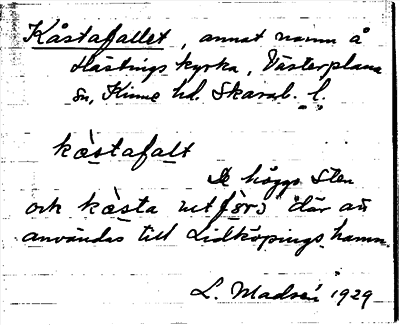 Kåstafallet, annat namn å
Hästings kyrka, Västerplana
sn, Kinne hd. Skarab. l.
kæ̀stafalt
De höggs sten
och kæ̀sta ut för där att
användas till Lidköpings hamn.
L. Madsén 1929